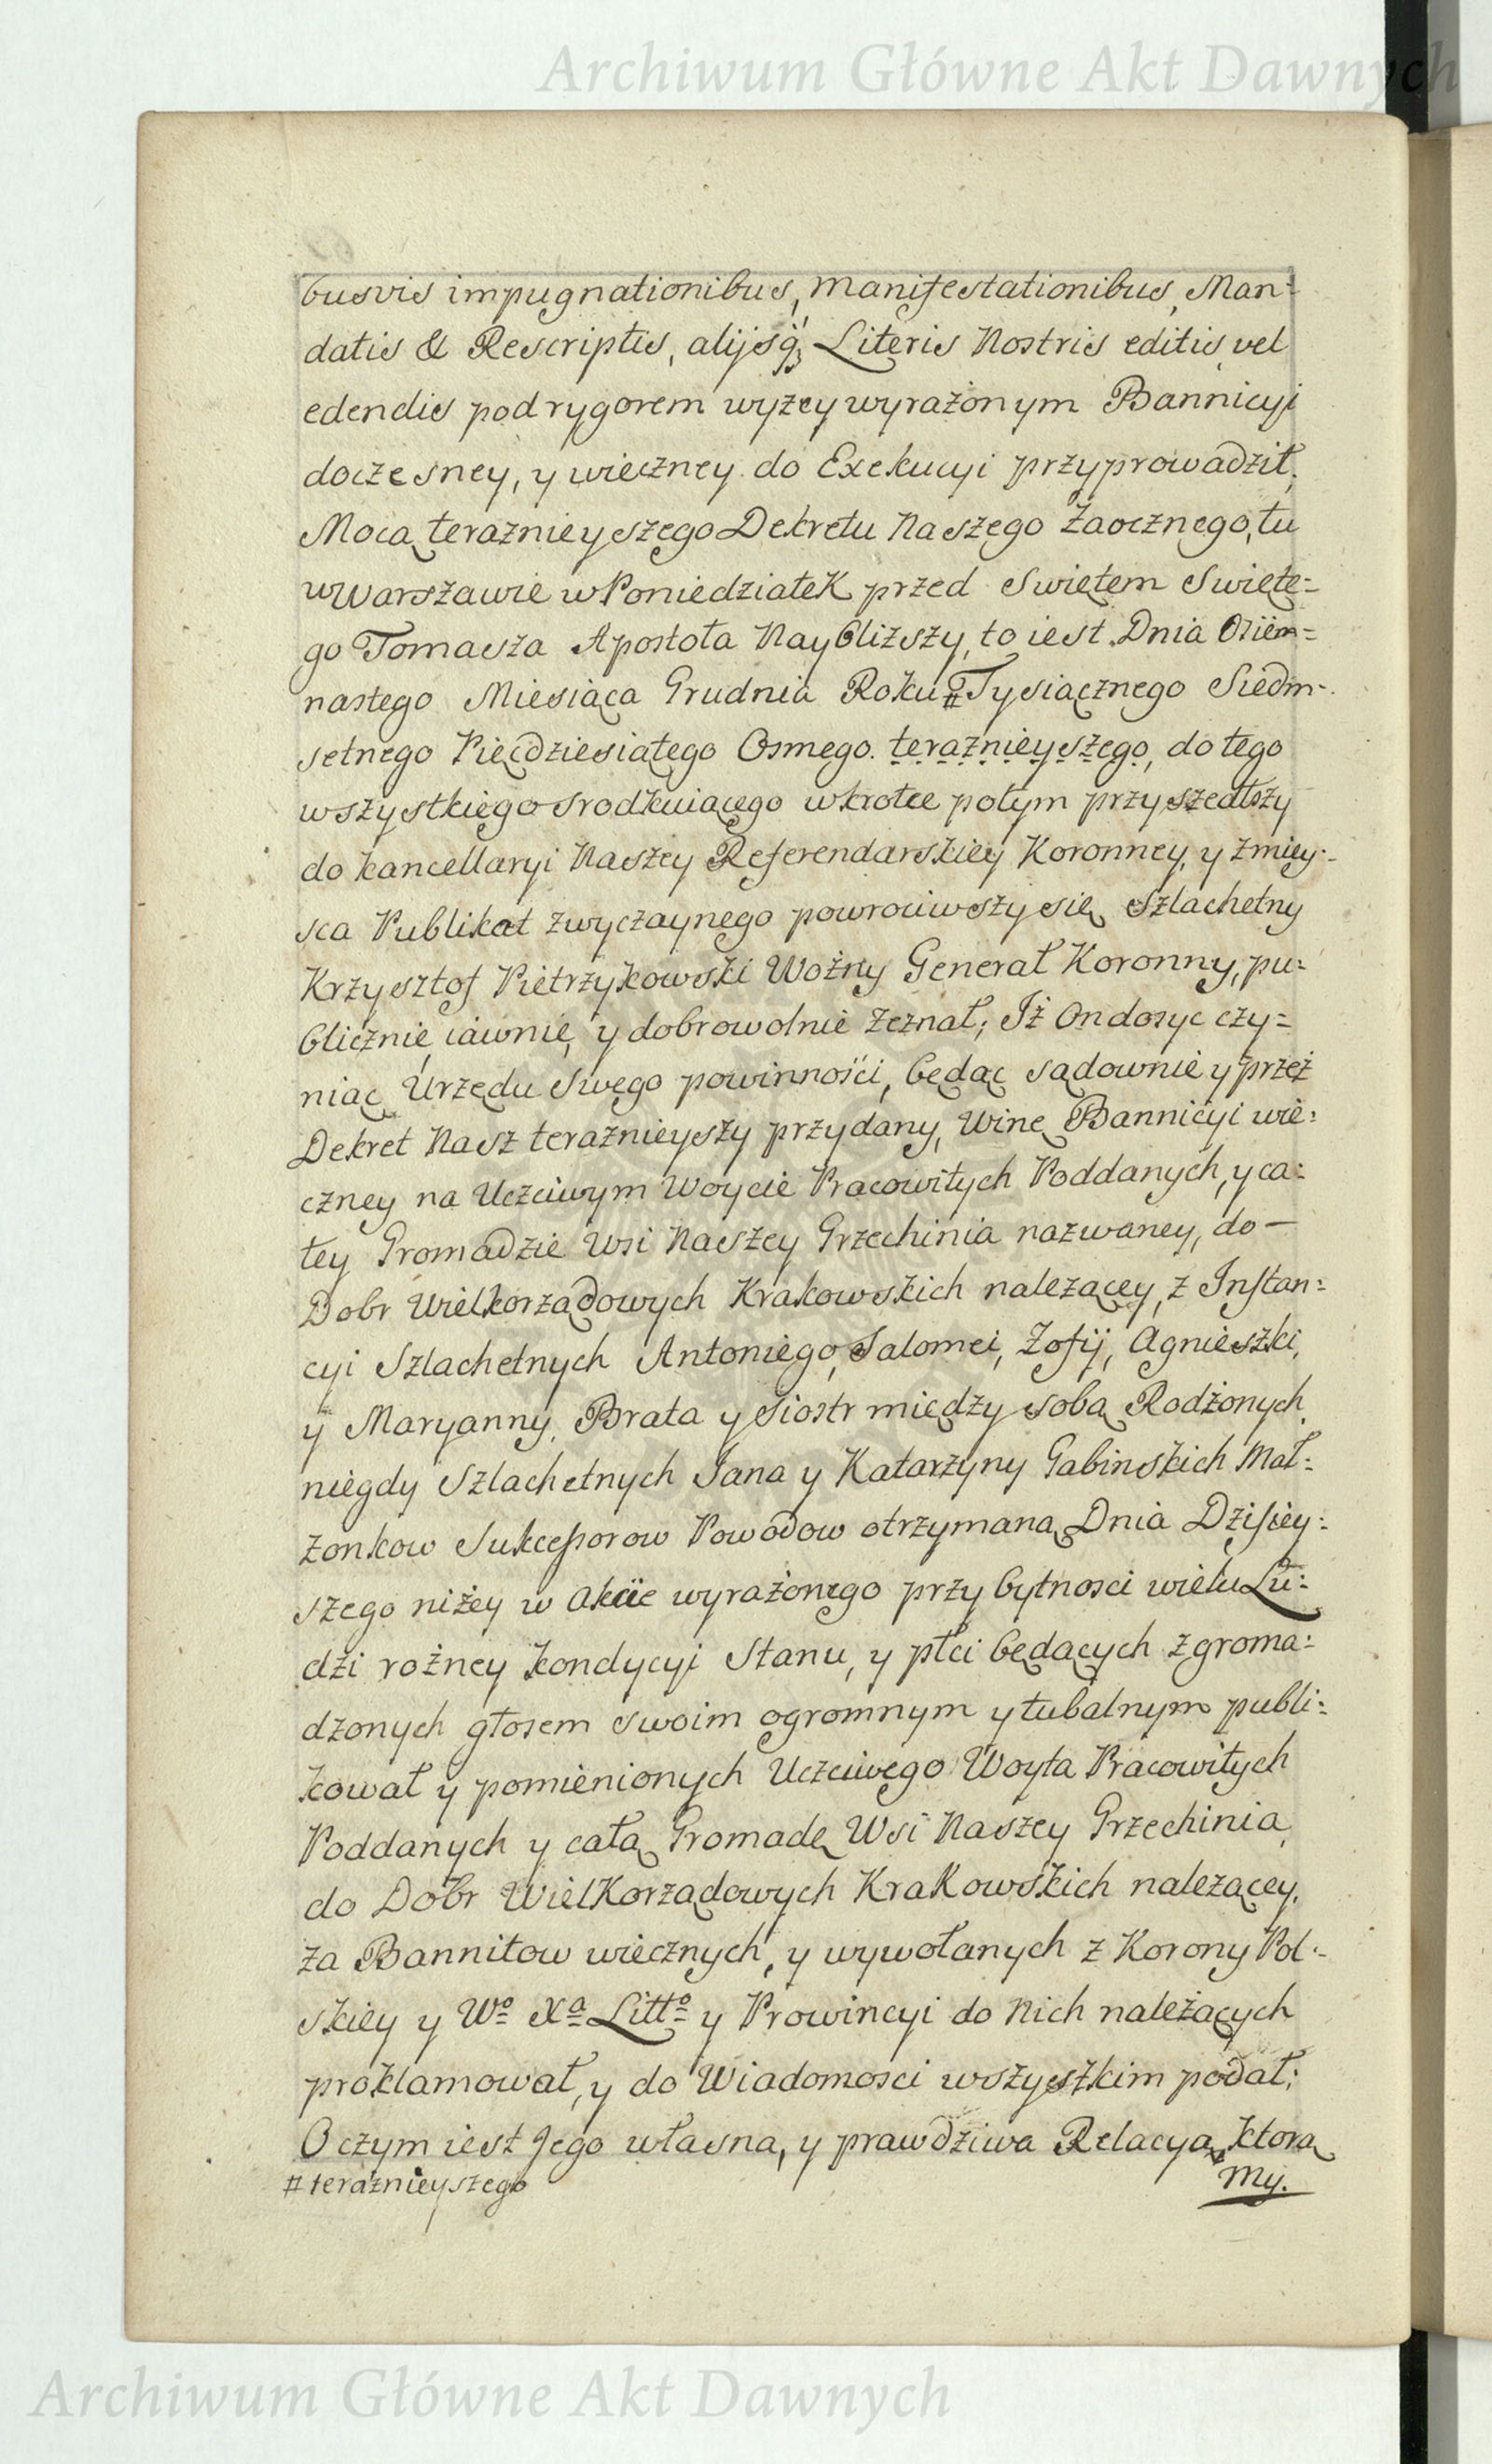 Archiwum Główne Akt Dawnych
busvis impugnationibus, Manifestationibus, Man=
datis & Rescriptis, alijsq; Literis Nostris editis vel
edendis pod rygorem wyzey wyrażonym Bannicyi
doczesney, y wieczney do Exekucyi przyprowadził,
Mocą teraznieyszego Dekretu Naszego Zaocznego, tu
w Warszawie w Poniedziałek przed Swiętem Swięte=
go Tomasza Apostoła Nayblizszy, to iest Dnia Osiem=
nastego Miesiąca Grudnia Roku # Tysiącznego Siedm=
setnego Pięćdziesiątego Osmego. teraznieyszego, do tego
wszystkiego srodkuiącego wkrotce potym przyszedłszy
do kancellaryi Naszey Referendarskiey Koronney, y zmiey=
sca Publikat zwyczaynego powrociwszy się Szlachetny
Krzysztof Pietrzykowski Woźny Generał Koronny, pu=
blicznie, iawnie, y dobrowolnie zeznał; Iż On dosyc czy=
niąc Urzędu Swego powinności, będąc sądownie y przez
Dekret Nasz teraznieyszy przydany, Winę Bannicyi wie=
czney na Uczciwym Woycie Pracowitych Poddanych, y ca=
łey Gromadzie Wsi Naszey Grzechinia nazwaney, do —
Dobr Wielkorządowych Krakowskich nalezącey, z Instan=
cyi Szlachetnych Antoniego, Salomei, Zofij, Agnieszki,
y Maryanny, Brata y Siostr między sobą Rodzonych
niegdy Szlachetnych Jana y Katarzyny Gabinskich Mał=
zonkow Sukcessorow Powodow otrzymaną Dnia Dzisiey=
szego niżey w Akcie wyrażonego przy bytnosci wielu Lu=
dzi rożney kondycyi Stanu, y płci będących zgroma=
dzonych głosem swoim ogromnym y tubalnym publi=
kował y pomienionych Uczciwego Woyta Pracowitych
Poddanych y całą Gromadę Wsi Naszey Grzechinia
do Dobr Wielkorządowych Krakowskich nalezącey,
za Bannitow wiecznych, y wywołanych z Korony Pol=
skiey y Wº Xª Littº y Prowincyi do Nich należących
proklamował, y do Wiadomosci wszystkim podał;
O czym iest Jego własna, y prawdziwa Relacya, ktorą
# teraznieyszego
My.
Archiwum Główne Akt Dawnych